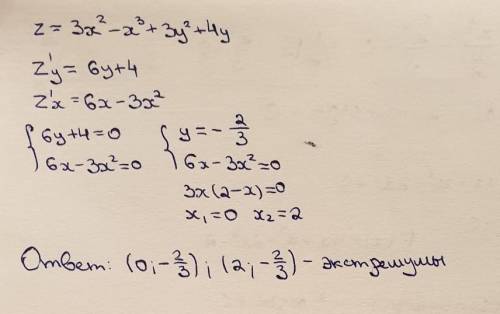 z = 3x² - x³ + 3y² + 4y
z'y = 6y + 4
z'x = 6x - 3x²
{ 6y + 4 = 0   { y = - 2/3
{ 6x - 3x² = 0   { 6x - 3x² = 0
3x(2 - x) = 0
x₁ = 0   x₂ = 2
Ответ: (0; - 2/3) ; (2; - 2/3) - экстремумы